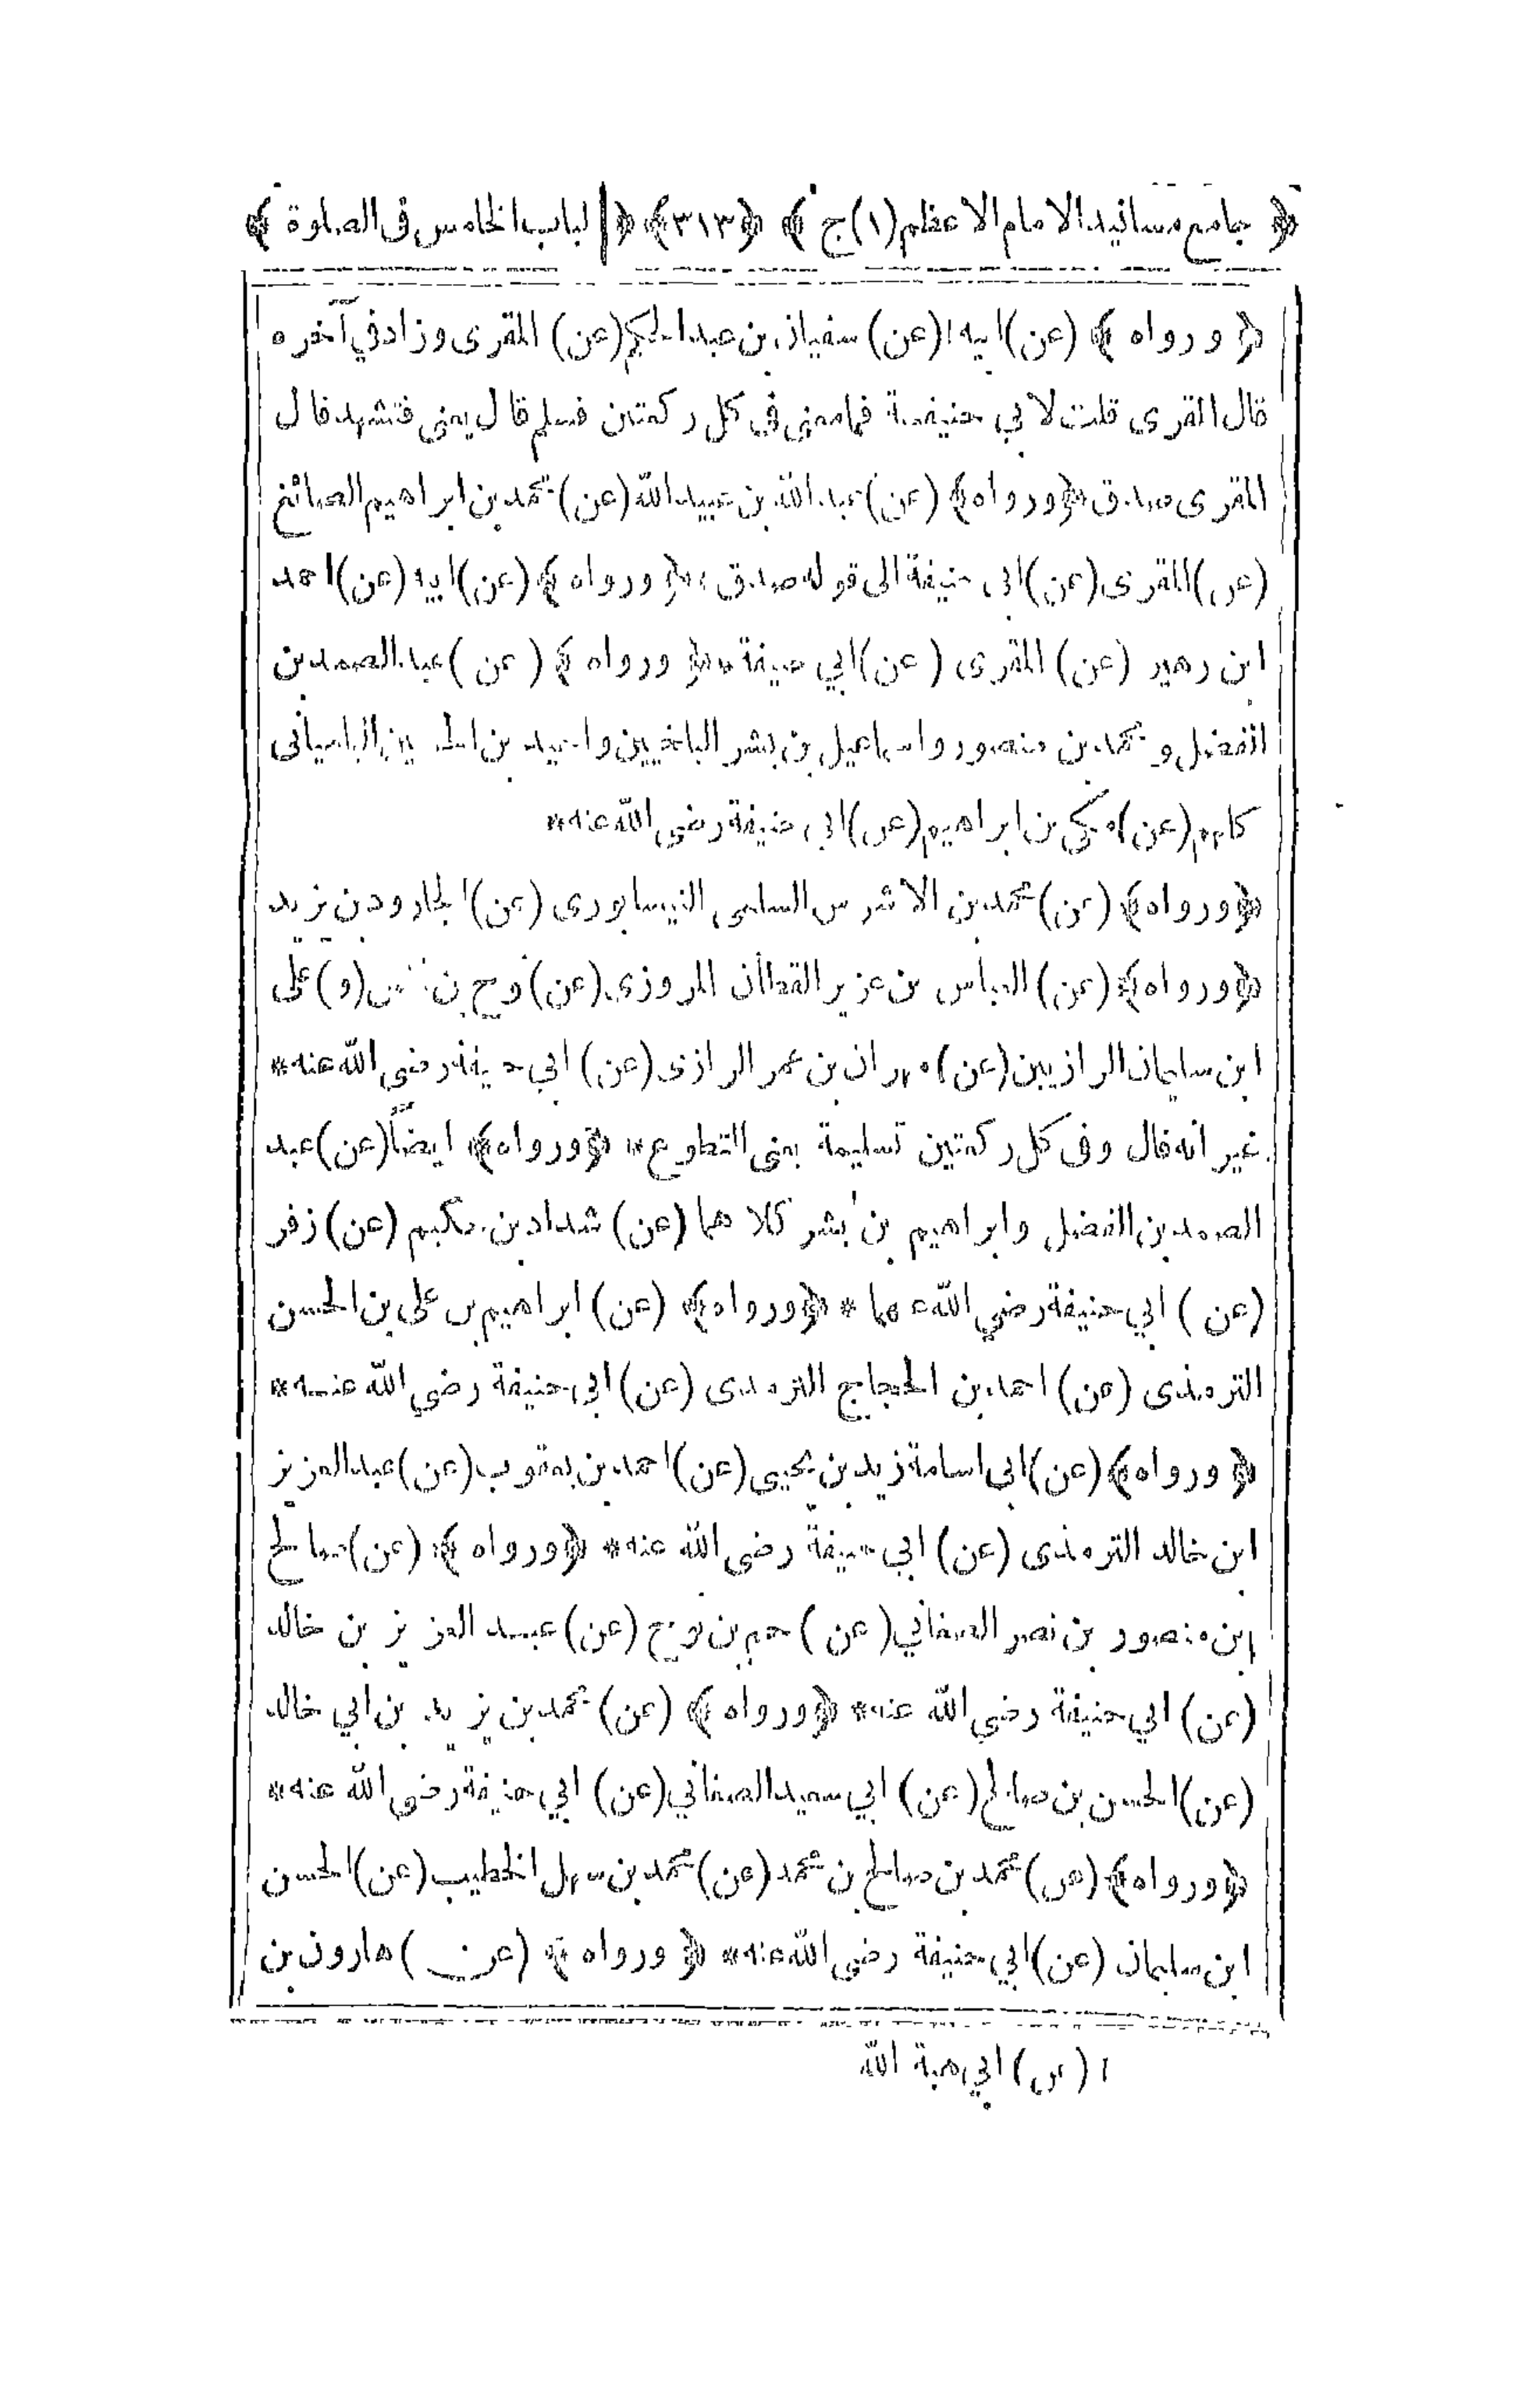 ﴿ جامع مسانيد الامام الاعظم (١) ج ﴾ ﴿٣١٣﴾ ﴿الباب الخامس فى الصلوة ﴾
﴿ ورواه ﴾ (عن) ابيه ١ (عن) سفيان بن عبد الحكيم (عن) المقرى وزاد في آخره
قال المقرى قلت لابي حنيفة فما معنى في كل ركعتين فسلم قال يعنى فتشهد قال
المقرى صدق ﴿ورواه﴾ (عن) عبد الله بن عبيد الله (عن) محمد بن ابراهيم الصائغ
(عن) المقرى (عن) ابى حنيفة الى قوله صدق * ﴿ ورواه ﴾ (عن) ابيه (عن) احمد
ابن زهير (عن) المقرى (عن) ابي حنيفة * ﴿ ورواه ﴾ (عن) عبد الصمد بن
الفضل و محمد بن منصور واسماعيل بن بشر البلخيين و بن البامياني
كلهم (عن) مكى بن ابراهيم (عن) ابى حنيفة رضى الله عنه *
﴿ورواه﴾ (عن) محمد بن الاشرس السلمى النيسابورى (عن) الجارود بن يزيد
﴿ورواه﴾ (عن) العباس بن عزير القطان المروزى (عن) نوح بن (و) على
ابن سليمان الرازيين (عن) مهران بن عمر الرازى (عن) ابي حنيفة رضى الله عنه *
غير انه قال وفى كل ركعتين تسليمة يعنى التطوع * ﴿ورواه﴾ ايضاً (عن) عبد
الصمد بن الفضل وابراهيم بن بشر كلاهما (عن) شداد بن حكيم (عن) زفر
(عن) ابي حنيفة رضي الله عنهما * ﴿ورواه﴾ (عن) ابراهيم بن على بن الحسن
الترمذى (عن) احمد بن الحجاج الترمذى (عن) ابى حنيفة رضي الله عنه *
﴿ ورواه﴾ (عن) ابى اسامة زيد بن يحيى (عن) احمد بن يعقوب (عن) عبد العزيز
ابن خالد الترمذى (عن) ابي حنيفة رضى الله عنه * ﴿ورواه ﴾ (عن) صالح
ابن منصور بن نصر الصغاني (عن) حم بن نوح (عن) عبد العزيز بن خالد
(عن) ابي حنيفة رضي الله عنه * ﴿ورواه ﴾ (عن) محمد بن يزيد بن ابي خالد
(عن) الحسن بن صالح (عن) ابي سعيد الصغاني (عن) ابي حنيفة رضى الله عنه *
﴿ورواه﴾ (عن) محمد بن صالح بن محمد (عن) محمد بن سهل الخطيب (عن) الحسن
ابن سليمان (عن) ابي حنيفة رضى الله عنه * ﴿ ورواه ﴾ (عن) هارون بن
١ (عن) ابي هبة الله